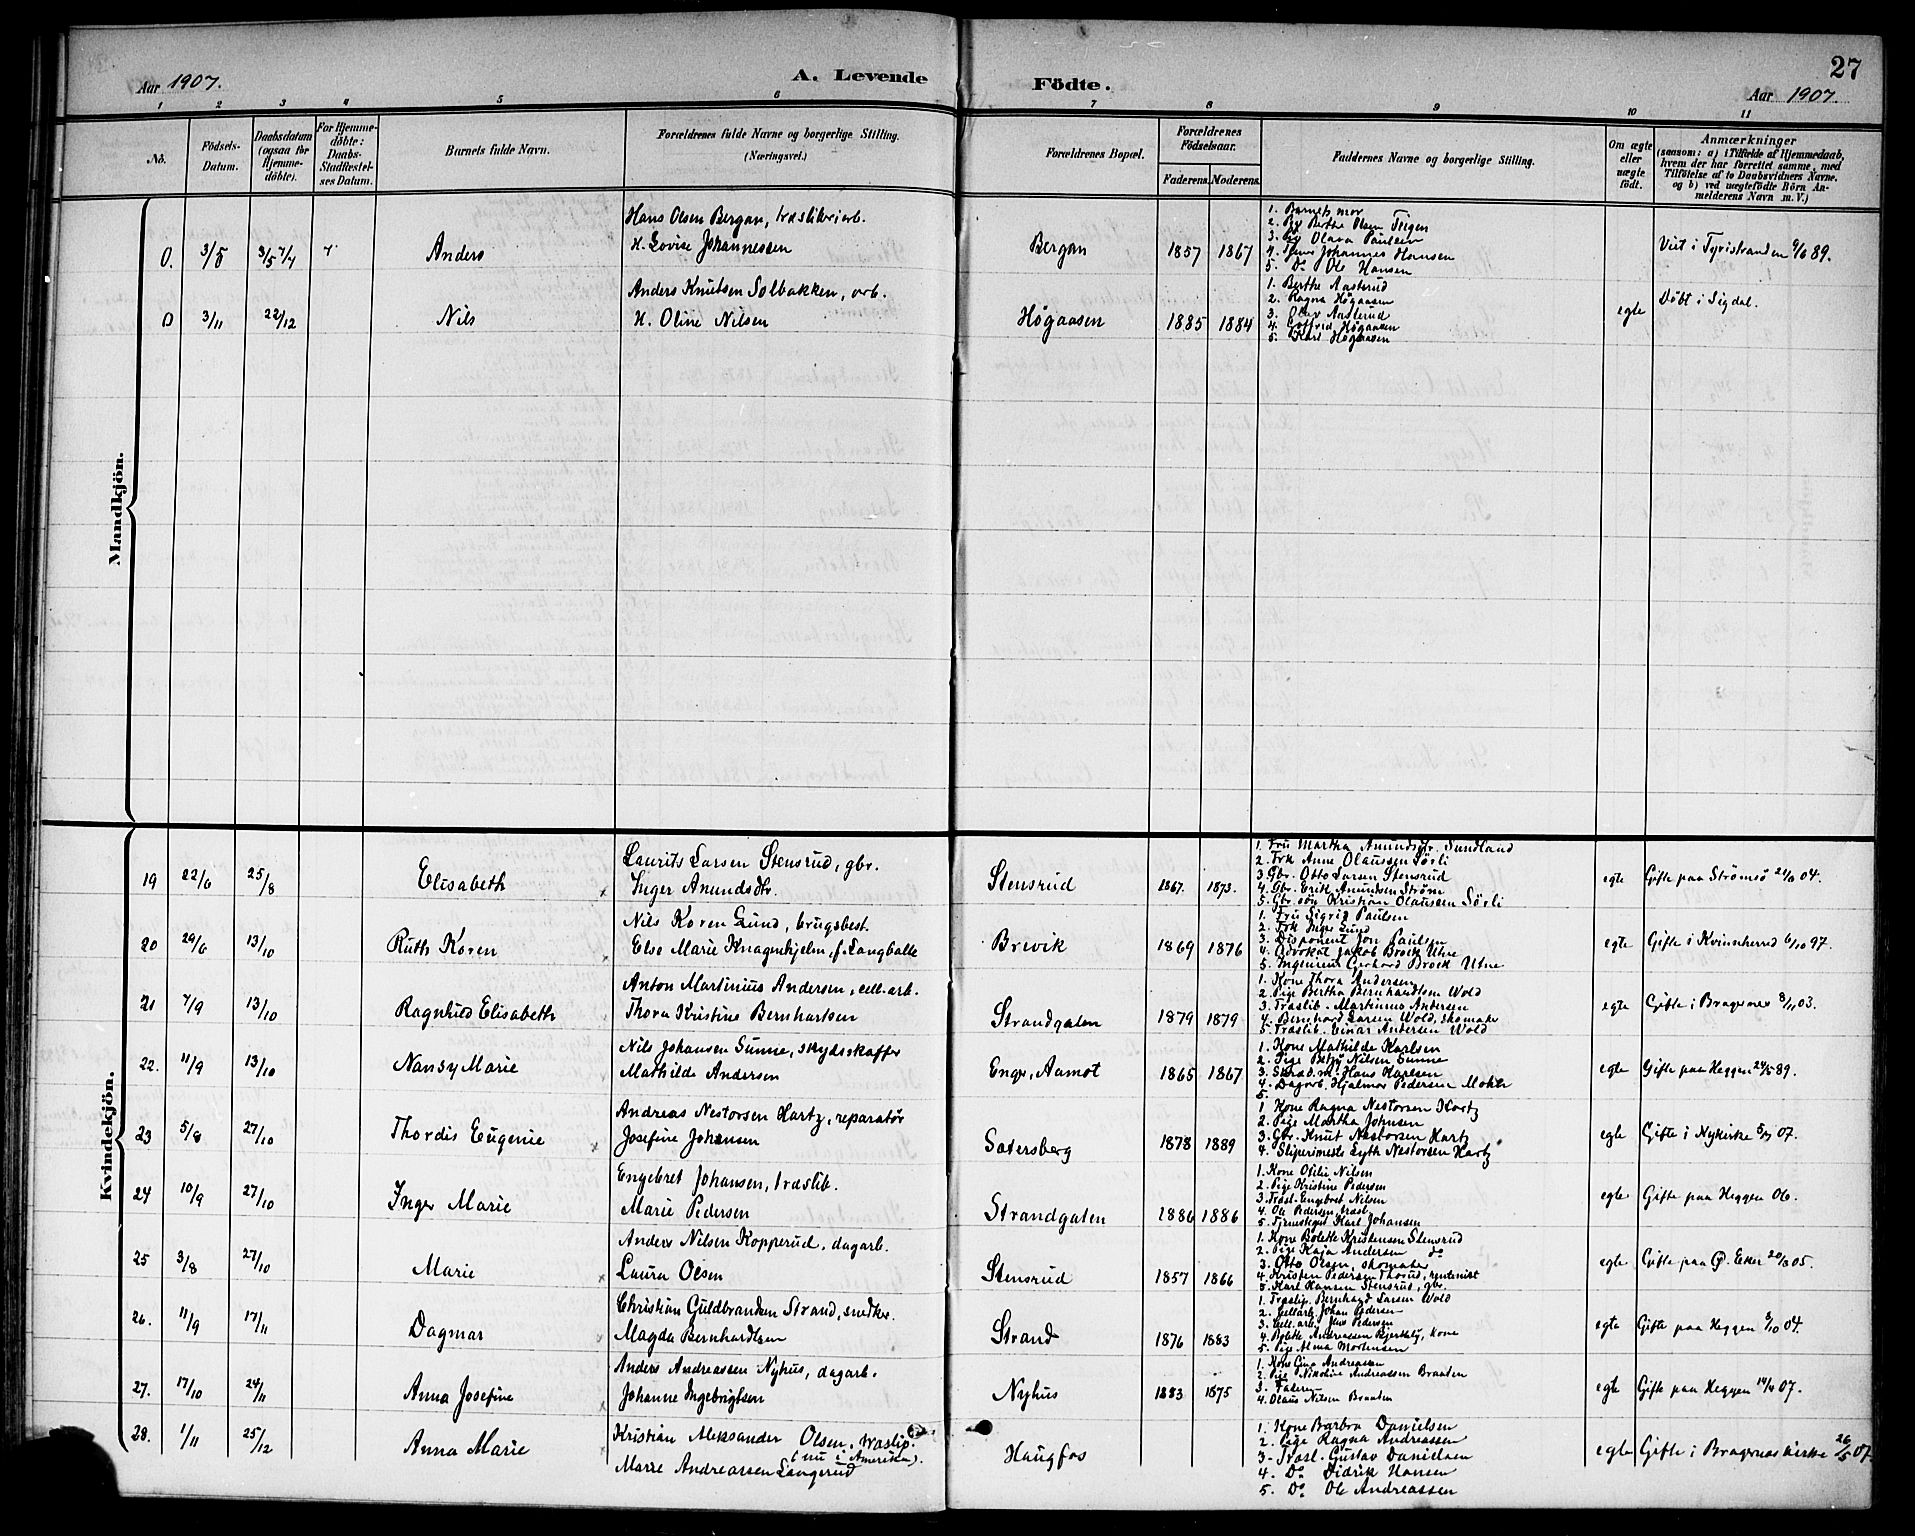 Aar 1907.
A. Levende
Födte.
27
Aar 1907.
1 2 3 4 5 6 7 8 9 10 11
No.
Födsels-Datum.
Daabsdatum (ogsaa for Hjemme-döbte).
For Hjemme-döbte: Daabs-Stadfæstel-ses Datum.
Barnets fulde Navn.
Forældrenes fulde Navne og borgerlige Stilling. (Næringsvei.)
Forældrenes Bopæl.
Forældrenes Födselsaar.
Faderens. Moderens.
Faddernes Navne og borgerlige Stilling.
Om ægte eller uægte födt.
Anmærkninger
(saasom: a) i Tilfælde af Hjemmedaab, hvem der har forrettet samme, med Tilföielse af to Daabsvidners Navne, og b) ved uægtefödte Börn An-melderens Navn m. V.)
Mandkjön.
0. 3/5 Anders
Hans Olsen Bergan, træsliberiarb.
H. Lovise Johannessen
Bergan 1857 1867
1. Barnets mor
2. Pg Berthe Olsen Teigen
3. Pg Olava Paulsen
4. Johannes Hansen
5. Do Ole Hansen
Viet i Tyristranden 89.
0 3/11 22/12 Nils
Anders Knutsen Solbakken, arb.
H. Oline Nilsen
Högaasen 1885 1884
1. Berthe Aasterud
2. Ragna Högaasen
3. Olav Aasterud
4. Gotfred Högaasen
5. Karl Högaasen
egte
Döbt i Sigdal.
Kvindekjön.
19 22/6 25/8 Elisabeth
Laurits Larsen Stensrud, gbr.
Inger Anundsdtr.
Stensrud 1867. 1873.
1. Fru Martha Anundsdtr. Sundland
2. Frk Anne Olaussen Sörli
3. Gbr. Otto Larsen Stensrud
4. Gbr. Erik Anundsen Ström
5. Gbr. sön Kristian Olaussen Sörli
egte
Gifte paa Strömsö 04.
20 29/6 13/10 Ruth Koren
Nils Koren Lund, brugsbest.
Else Marie Knagenhjelm, f. Langballe
Brevik 1869 1876
1. Fru Sigrid Paulsen
2. Frk Inga Lund
3. Disponent Jon Paulsen
4. Advokat Jakob Brock Utne
5. Ingenieur Gerhard Brock Utne
egte
Gifte i Kvinnherred 6/10 97.
21 7/9 13/10 Ragnhild Elisabeth
Anton Martinius Andersen, cell.arb.
Thora Kristine Bernhartsen
Strandgaten 1879 1879
1. Kone Thora Andersen
2. Pige Bertha Bernhardtsen Wold
3. Træslib. Martinius Andersen
4. Bernhard Larsen Wold, skomaker
5. Træslib. Einar Andersen Wold
egte
Gifte i Bragernes 8/11 03.
22. 11/9 13/10 Nansy Marie
Nils Johansen Sunne, skydsskaffer
Mathilde Andersen
Enger, Aamot 1865 1867
1. Kone Mathilde Karlsen
2. Pige Betzy Nilsen Sunne
3. Skræd.m. Hans Karlsen
4. Dagarb. Hjalmar Pedersen
5.
egte
Gifte paa Heggen 89.
23 5/8 27/10 Thordis Eugenie
Andreas Nestorsen Hartz, reparatør
Josefine Johansen
Sætersberg 1878 1889
1 Kone Ragna Nestorsen Hartz
2. Pige Martha Johnsen
3. Gbr. Knut Nestorsen Hartz
4. Sliperimester Nestorsen Hartz
egte
Gifte i Nykirke 07.
24 10/9 27/10 Inger Marie
Engebret Johansen, træslib.
Marie Pedersen
Strandgaten 1886 1886
1. Kone Otilie Nilsen
2. Pige Kristine Pedersen
3. Træsl. Engebret Nilsen
4. Ole Pedersen træsl.
5. Karl Johansen
egte
Gifte paa Heggen 06.
25 3/8 27/10 Marie
Anders Nilsen Kopperud, dagarb.
Laura Olsen
Stensrud 1857 1866
1. Kone Bolette Kristensen Stensrud
2. Pige Kaja Andersen do
3. Otto Olsen, skomaker
4. Kristen Pedersen Thorud, rentenist
5. Karl Hansen Stensrud, gbr.
egte
Gifte paa Ø. Eker 05.
26. 11/9 17/11 Dagmar
Christian Guldbrandsen Strand, snedker.
Magda Bernhardtsen
Strand 1876 1883
1. Træslip. Bernhard Larsen Wold
2. Cellarb. Johan Pedersen
3. Cell.arb. Pedersen
4. Bolette Andreassen, kone
5. Pige Alma Mortensen
egte
Gifte paa Heggen 04.
27. 17/10 24/11 Anna Josefine
Anders Andreassen Nyhus, dagarb.
Johanne Ingebrigtsen
Nyhus 1883 1875
1. Kone Lina Andreassen
2. Pige Nikoline Andreassen Braaten
3. Faderen
4. Olaus Nilsen Braaten
egte
Gifte paa Heggen 14/4 07.
28. 1/11 25/12 Anna Marie
Kristian Aleksander Olsen, træslip.
(nu i Amerika).
Marie Andreassen Langerud
Haugfos
1. Kone Barbro Danielsen
2. Pige Ragna Andreassen
3. Træsl. Gustav Danielsen
4. Do Didrik Hansen
5. Do Ole Andreassen
egte
Gifte i Bragernes kirke 26/5 07.